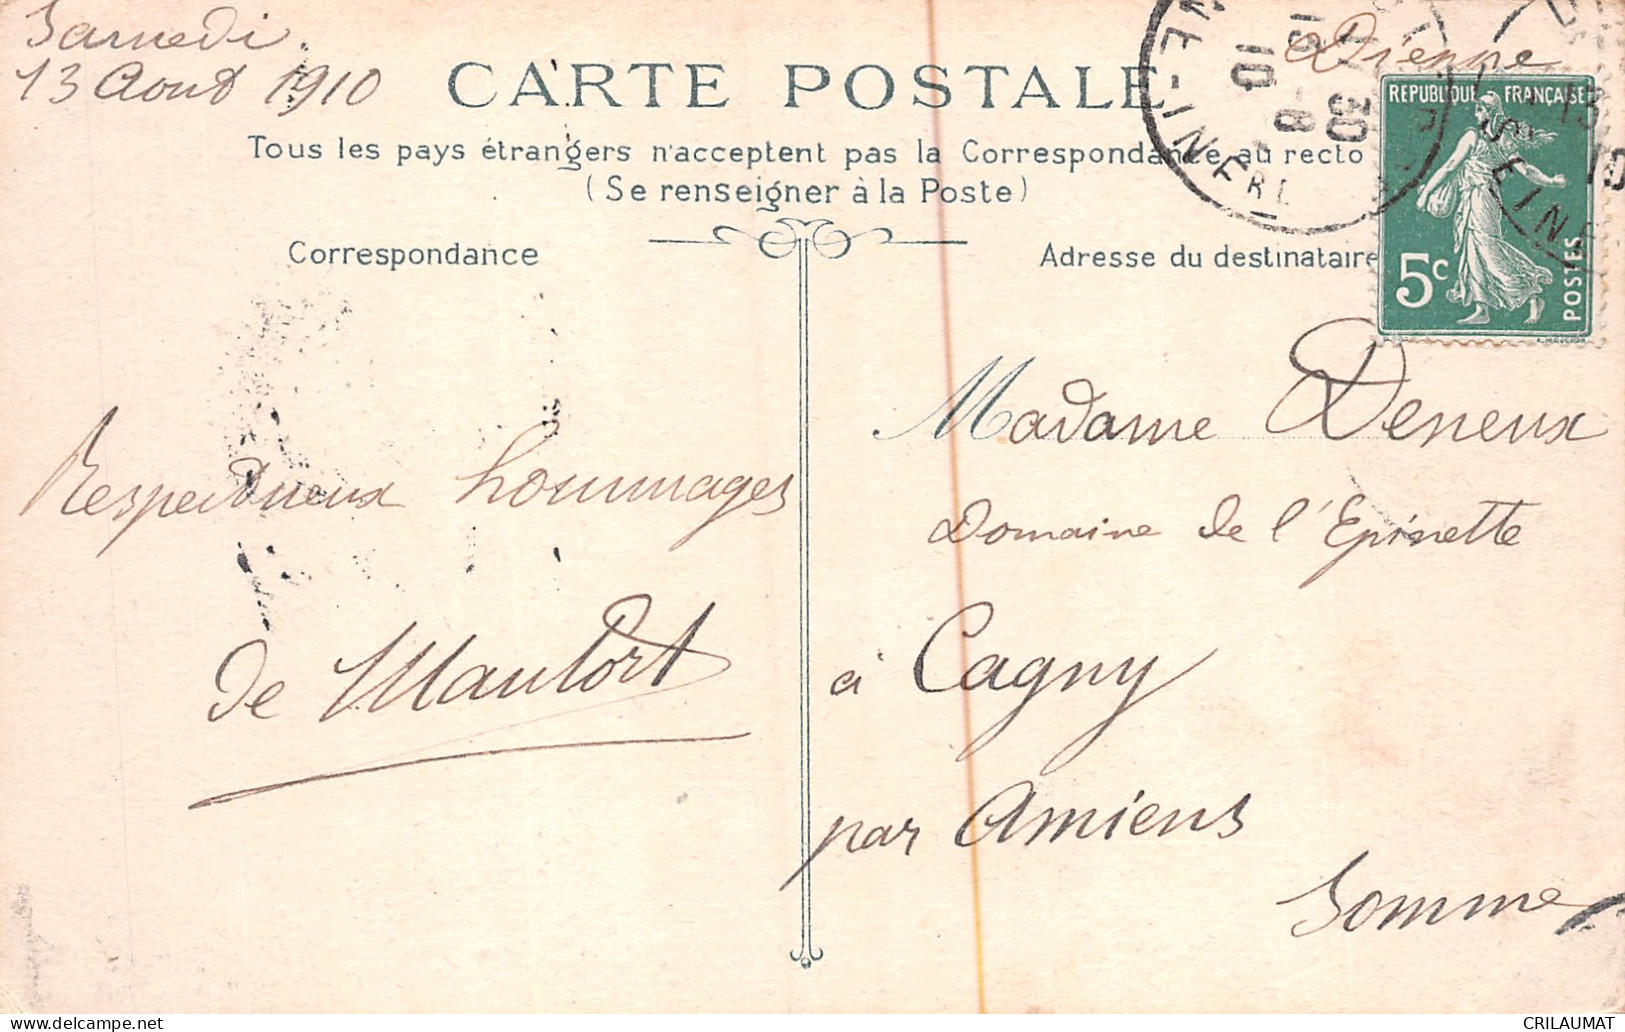 Samedi
13 Aout 1910
CARTE POSTALE
Tous les pays étrangers n'acceptent pas la Correspondance au recto
(Se renseigner à la Poste)
Correspondance
Adresse du destinataire
REPUBLIQUE FRANÇAISE
5c
POSTES
SEINE
INFRE
17 30
13 -8
10
13
10
Respectueux hommages
de Maulort
Madame Deneux
Domaine de l'Epinette
à Cagny
par Amiens
Somme
CRILAUMAT